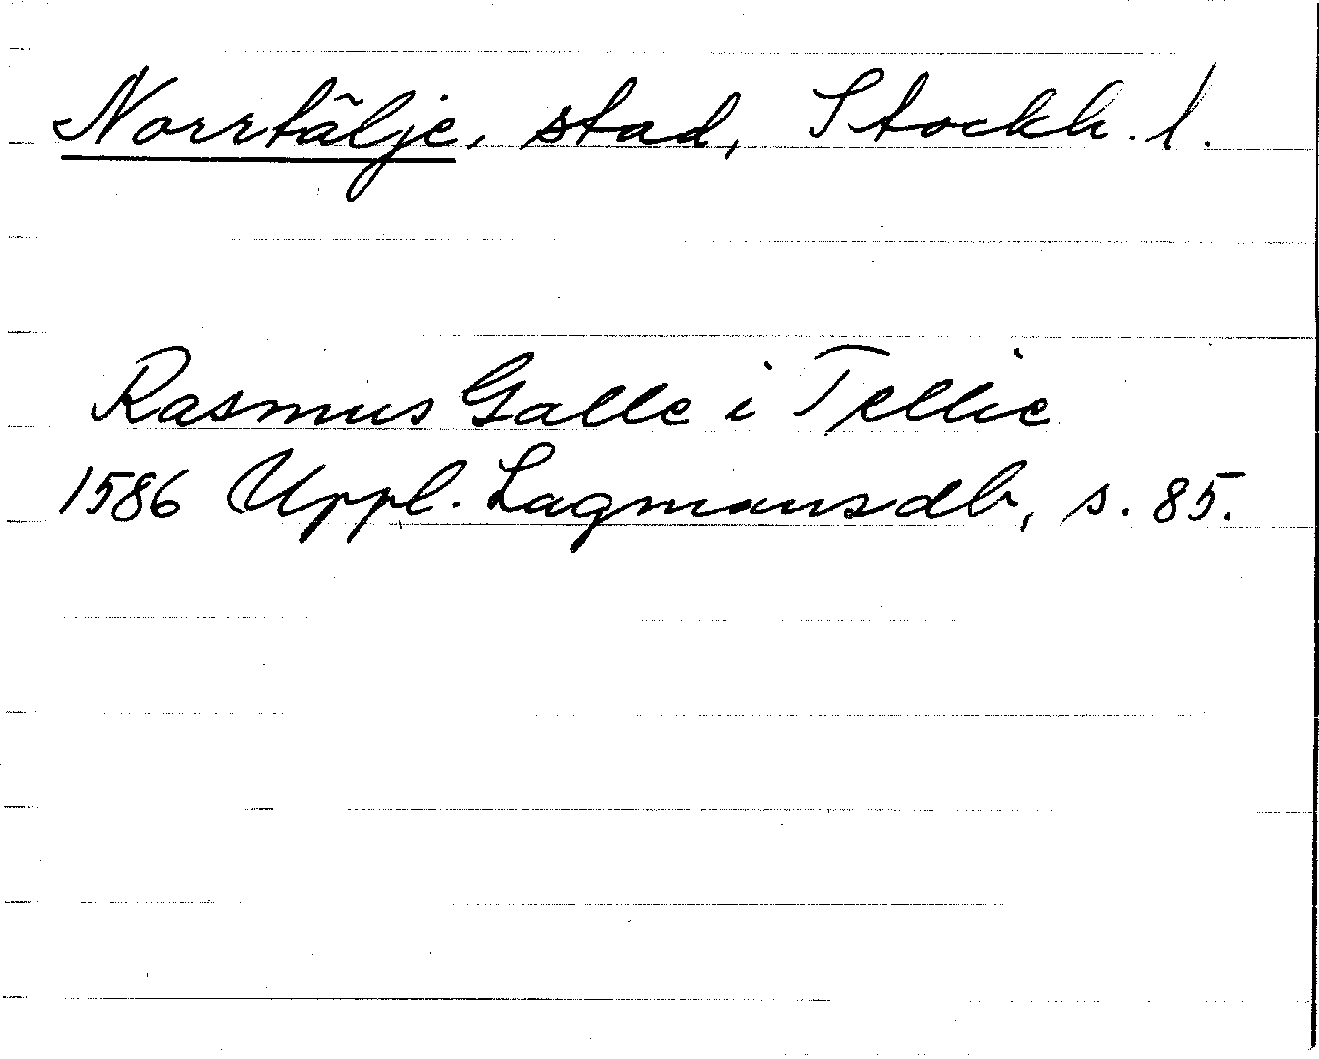 Norrtälje, stad, Stockh. l.
Rasmus Galle i Tellie
1586 Uppl. Lagmansdb, s. 85.